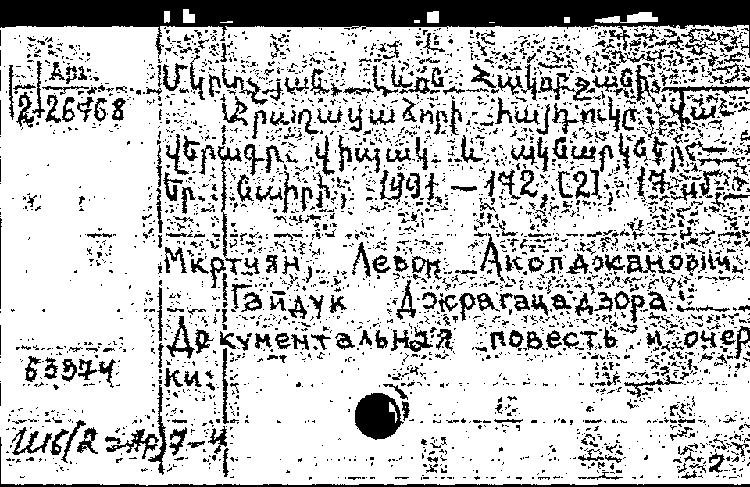 Арм.
2-26768
Մկրտչյան, Լևոն Հակոբջանի.
Ջրաղացաձորի հայդուկը: Վա-
վերագր. վիպակ և ակնարկներ.—
Եր.: Նաիրի, 1991 — 172, [2], 17 սմ.
Мкртчян, Левон Акопджанович.
Гайдук Джрагацадзора:
Документальная повесть и очер
ки:
63374
Ш6(2=Ар)7-4
2